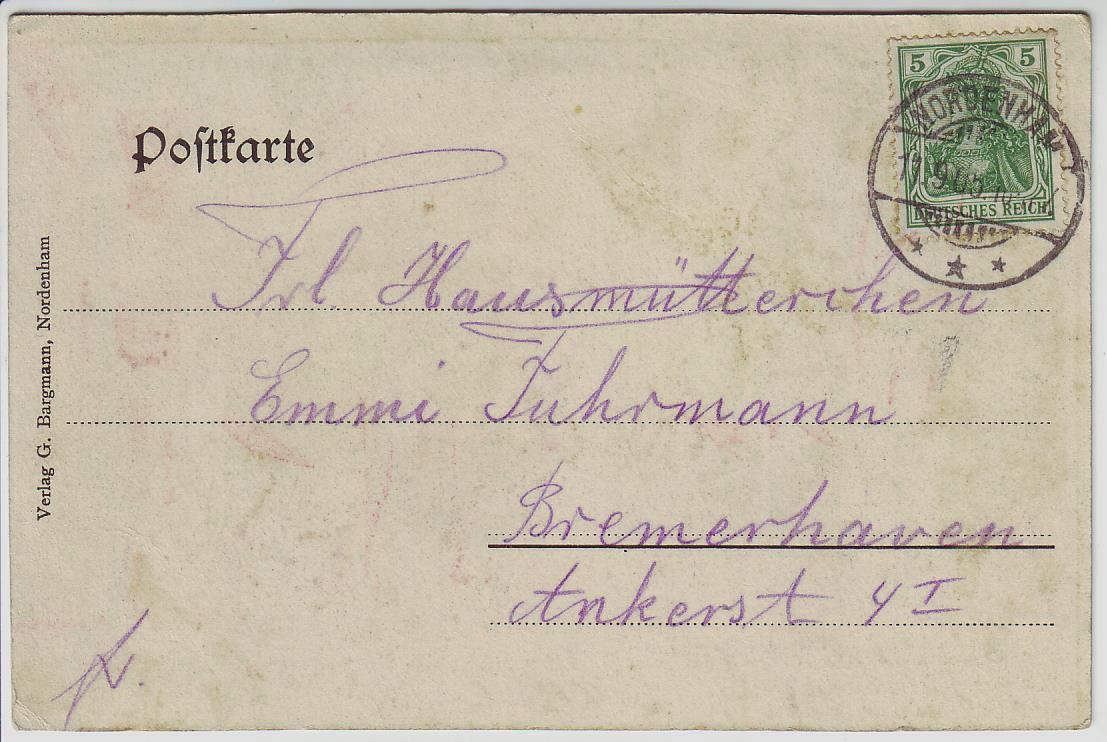 Postkarte
5 5
NORDENHAM
DEUTSCHES REICH
Frl. Hausmütterchen
Emmi Fuhrmann
Bremerhaven
Ankerst 4 I
Verlag G. Bargmann, Nordenham